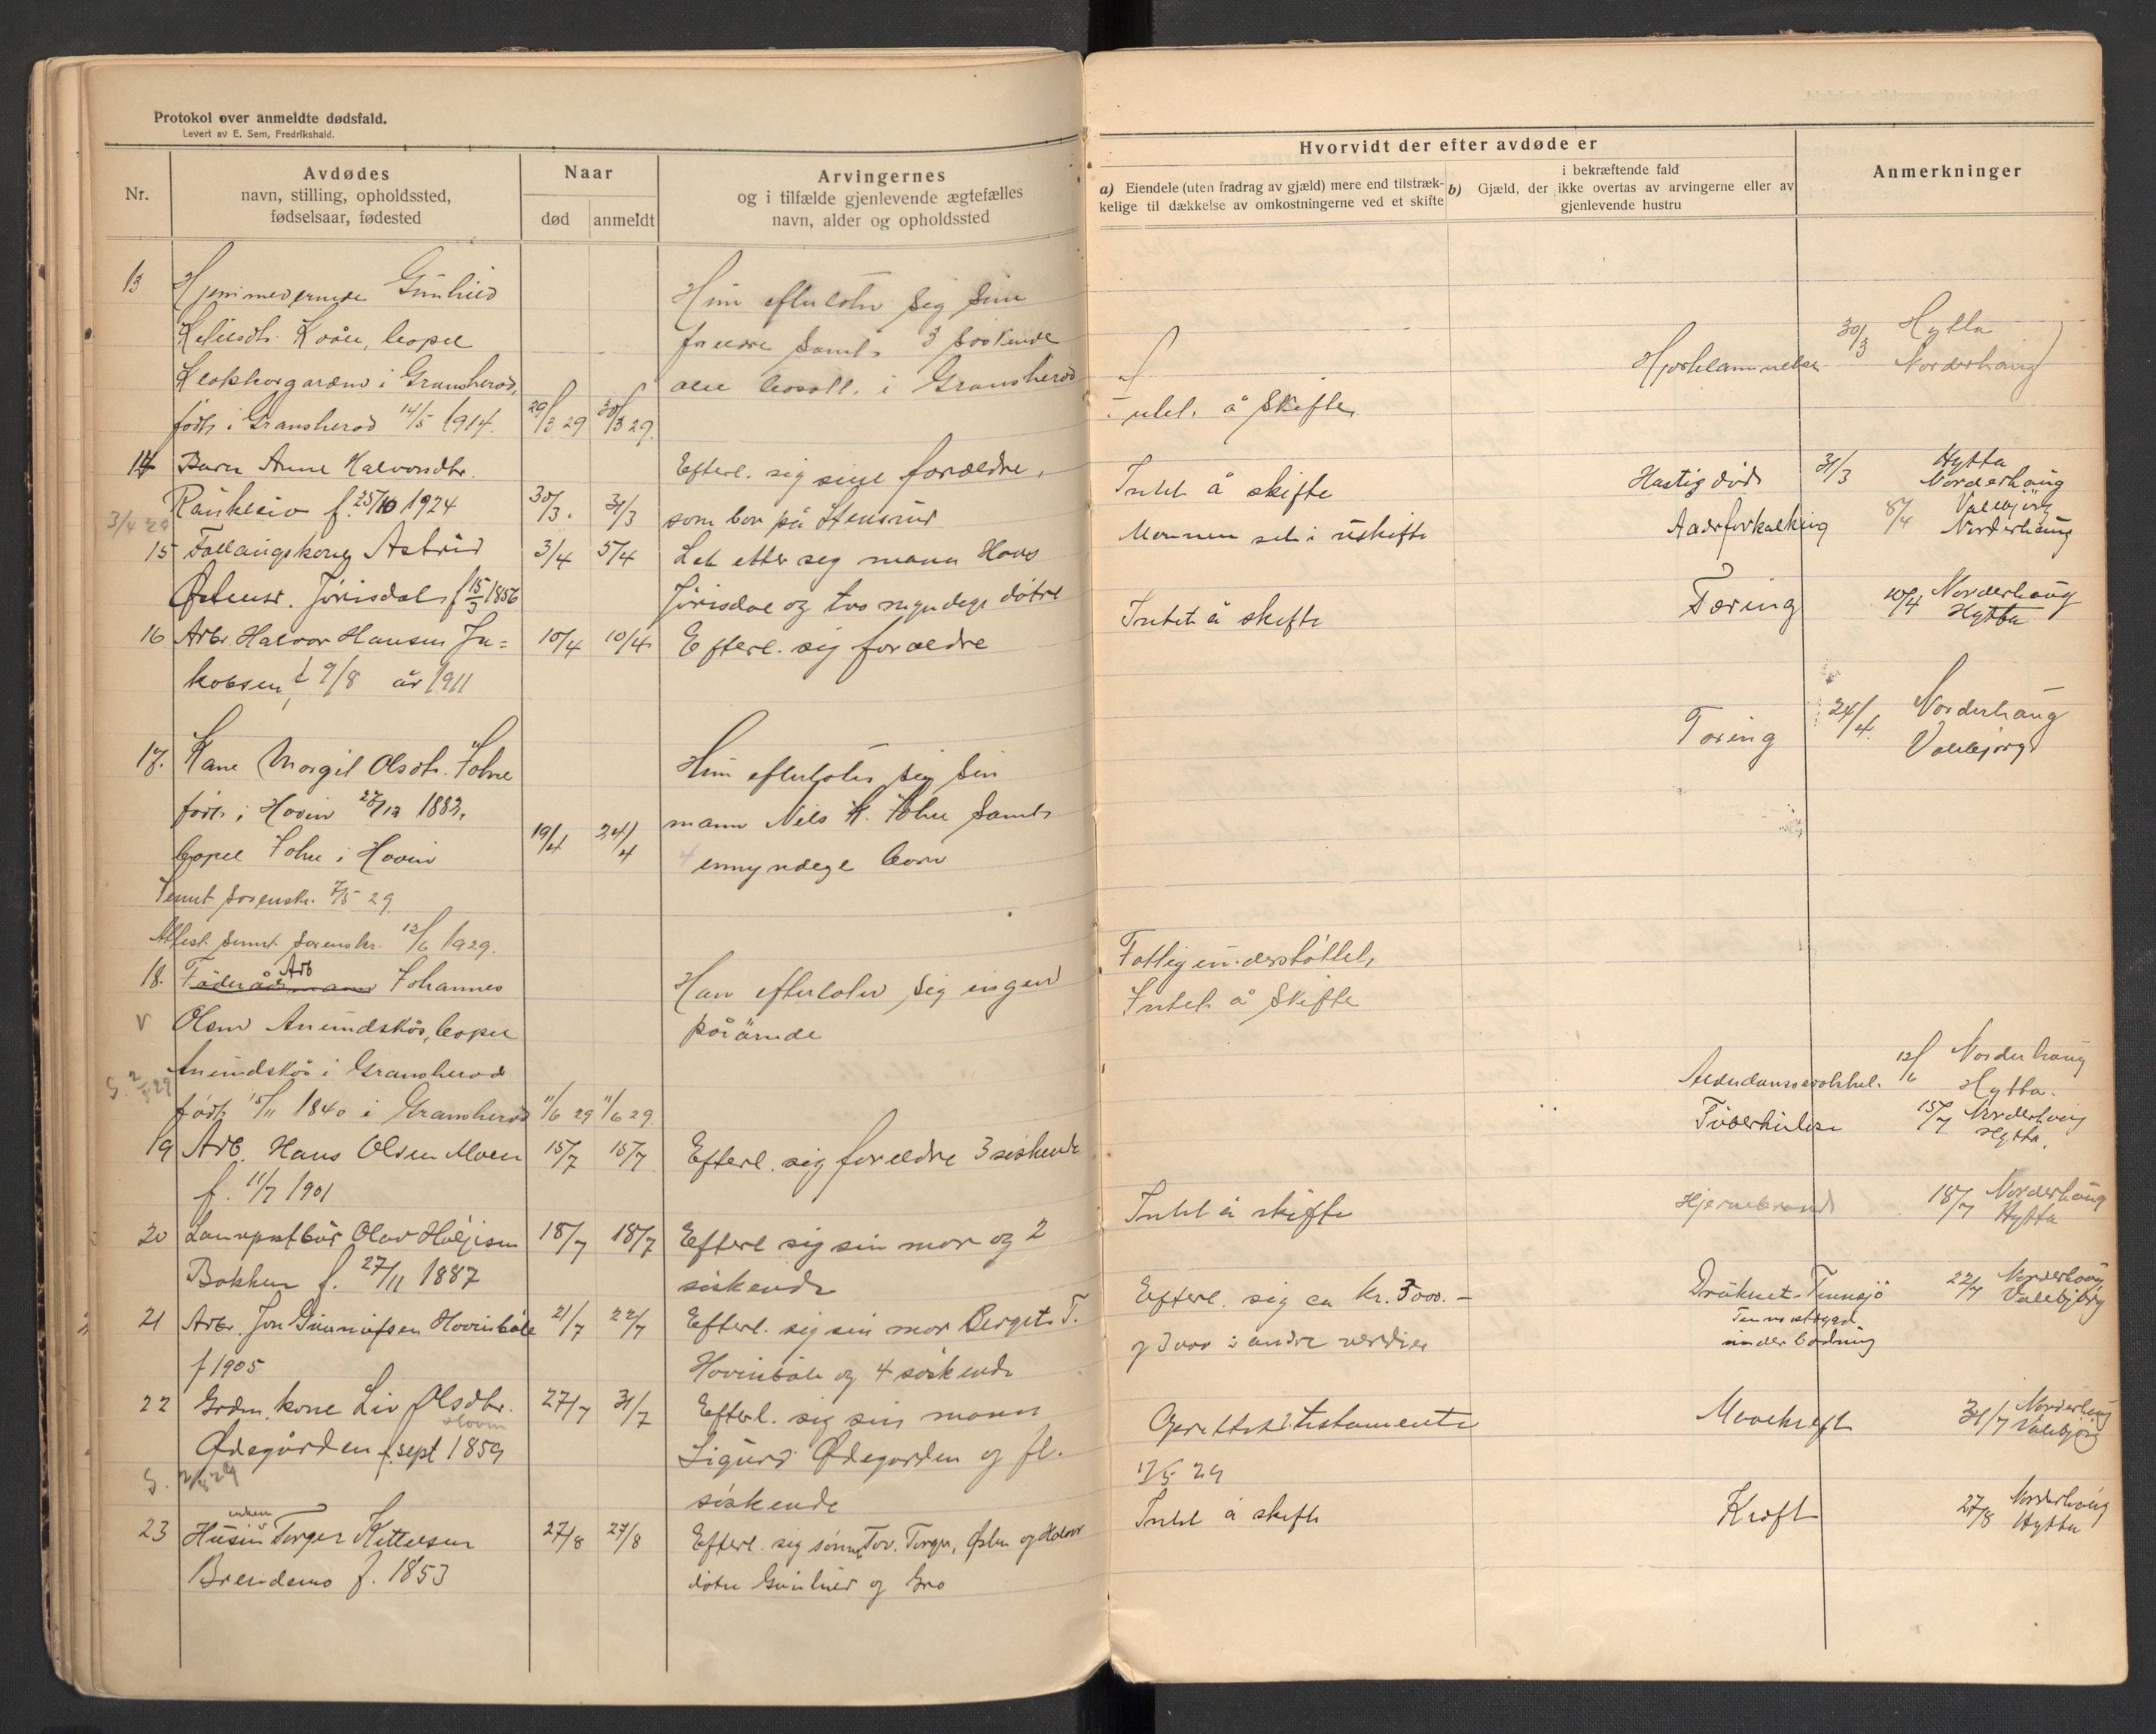 Protokol over anmeldte dødsfald.
Levert av E. Sem, Fredrikshald.
Nr.
Avdødes
navn, stilling, opholdssted,
fødselsaar, fødested
Naar
død
anmeldt
Arvingernes
og i tilfælde gjenlevende ægtefælles
navn, alder og opholdssted
13
Gunhild
i Gransherad,
født i Gransherad 14/5 1914.
29/3 29
30/3 29.
Hun efterlater sig sine
foreldre samt 3 søskende
alle bosatt. i Gransherad
14 Barn Anne Halvorsdtr.
f. 25/10 1924
30/3.
31/3
Efterl. sig sine forældre,
som bor på Stensrud
3/4 29
15 Astrid
Jørisdal f 15/3 1856
3/4
5/4
Let etter seg mann Hans
Jørisdal og tvo myndege døtre
16 Arbr. Halvor Hansen Ja=
kobsen, f 9/8 år 1911
10/4
10/4
Efterl. sig forældre
17. Kone Margit Olsdtr.
født i Hovin 1883.
i Hovin
19/4
24/4
Hun efterlater sig sin
mann Nils K. samt
4 umyndege born
Sennt sorenskr. 7/5 29.
Attest sennt sorenskr. 12/6 1929.
18. Føderådsmann Arb Johannes
V Olsen Anundskås, bopel
Anundskås i Gransherad
født 15/11 1840 i Gransherad
11/6 29
11/6 29.
Han efterlater sig ingen
pårårnde
19 Arb. Hans Olsen Moen
f. 11/7 1901
15/7
15/7
Efterl. sig foreldre 3 søskende
20 Olav
Bakken f. 27/11 1887
18/7
18/7
Efterl sig sin mor og 2
søskende
21 Arbr. Jon Gunnufsen Hovinbøle
f 1905
21/7
22/7
Efterl. sig sin mor Bergit T.
Hovinbøle og 4 søskende
22 Grdm. kone Liv Olsdtr.
Hovin
Ødegården f. sept 1859
27/7
31/7
Efterl. sig sin mann
Sigurd Ødegården og fl.
søskende
23 enkem
Torger Kittelsen
f. 1853
27/8
27/8
Efterl. sig sønner Tov. Torger, og Halvor
døtre Gunhild og Gro
Hvorvidt der efter avdøde er
a) Eiendele (uten fradrag av gjæld) mere end tilstræk-
kelige til dækkelse av omkostningerne ved et skifte
i bekræftende fald
b) Gjæld, der ikke overtas av arvingerne eller av
gjenlevende hustru
Anmerkninger
Intet å skifte
Hjertelammelse
30/3
Hytta
Norderhaug
Intet å skifte
Hastig død
31/3
Hytta
Norderhaug
Mannen sit i uskifte
Aadrforkalking
8/4
Vallebjörg
Norderhaug
Intet å skifte
Tæring
10/4
Norderhaug
Hytta
Tæring
24/4.
Norderhaug
Vallebjorg
Fattigunderstøttet,
Intet å skifte
12/6
Norderhaug
Hytta.
Tuberkulose
15/7
Norderhaug
Hytta.
Intet å skifte
Hjernebrand
18/7
Norderhaug
Hytta
Efterl. sig ca kr. 3000.-
og 3000 i andre verdier
Druknet. Tinnsjø
under badning
22/7
Norderhaug
Vallebjörg
Oprettet testamente
17/5 29
Mavekreft
31/7
Norderhaug
Vallebjörg
Intet å skifte
Kreft
27/8
Norderhaug
Hytta